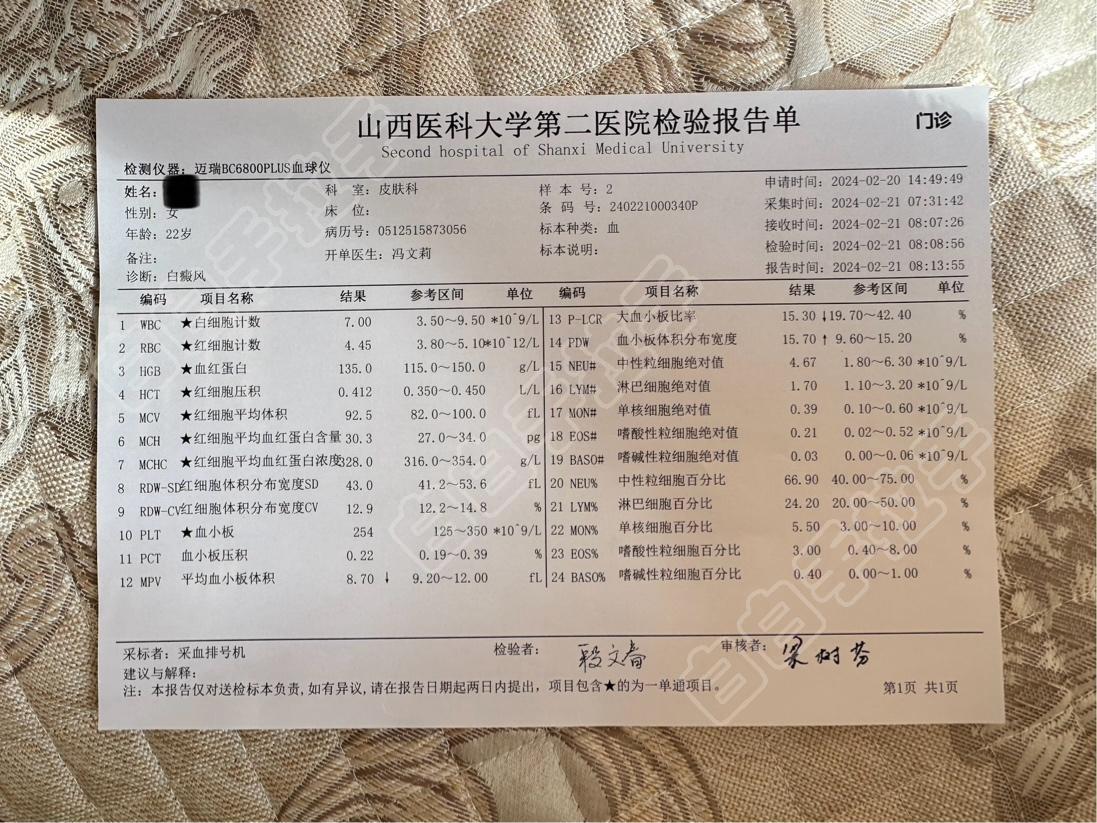 山西医科大学第二医院检验报告单
门诊
Second hospital of Shanxi Medical University
检测仪器: 迈瑞BC6800PLUS血球仪
姓名: 科 室: 皮肤科 样 本 号: 2 申请时间: 2024-02-20 14:49:49
性别: 女 床 位: 条 码 号: 240221000340P 采集时间: 2024-02-21 07:31:42
年龄: 22岁 病历号: 0512515873056 标本种类: 血 接收时间: 2024-02-21 08:07:26
备注: 开单医生: 冯文莉 标本说明: 检验时间: 2024-02-21 08:08:56
诊断: 白癜风 报告时间: 2024-02-21 08:13:55
编码 项目名称 结果 参考区间 单位 编码 项目名称 结果 参考区间 单位
1 WBC ★白细胞计数 7.00 3.50~9.50 *10^9/L 13 P-LCR 大血小板比率 15.30 ↓19.70~42.40 %
2 RBC ★红细胞计数 4.45 3.80~5.10*10^12/L 14 PDW 血小板体积分布宽度 15.70 ↑ 9.60~15.20 %
3 HGB ★血红蛋白 135.0 115.0~150.0 g/L 15 NEU# 中性粒细胞绝对值 4.67 1.80~6.30 *10^9/L
4 HCT ★红细胞压积 0.412 0.350~0.450 L/L 16 LYM# 淋巴细胞绝对值 1.70 1.10~3.20 *10^9/L
5 MCV ★红细胞平均体积 92.5 82.0~100.0 fL 17 MON# 单核细胞绝对值 0.39 0.10~0.60 *10^9/L
6 MCH ★红细胞平均血红蛋白含量 30.3 27.0~34.0 pg 18 EOS# 嗜酸性粒细胞绝对值 0.21 0.02~0.52 *10^9/L
7 MCHC ★红细胞平均血红蛋白浓度328.0 316.0~354.0 g/L 19 BASO# 嗜碱性粒细胞绝对值 0.03 0.00~0.06 *10^9/L
8 RDW-SD红细胞体积分布宽度SD 43.0 41.2~53.6 fL 20 NEU% 中性粒细胞百分比 66.90 40.00~75.00 %
9 RDW-CV红细胞体积分布宽度CV 12.9 12.2~14.8 % 21 LYM% 淋巴细胞百分比 24.20 20.00~50.00 %
10 PLT ★血小板 254 125~350 *10^9/L 22 MON% 单核细胞百分比 5.50 3.00~10.00 %
11 PCT 血小板压积 0.22 0.19~0.39 % 23 EOS% 嗜酸性粒细胞百分比 3.00 0.40~8.00 %
12 MPV 平均血小板体积 8.70 ↓ 9.20~12.00 fL 24 BASO% 嗜碱性粒细胞百分比 0.40 0.00~1.00 %
采标者: 采血排号机 检验者: 段文春 审核者: 梁树芬
建议与解释:
注: 本报告仅对送检标本负责,如有异议,请在报告日期起两日内提出, 项目包含★的为一单通项目。
第1页 共1页